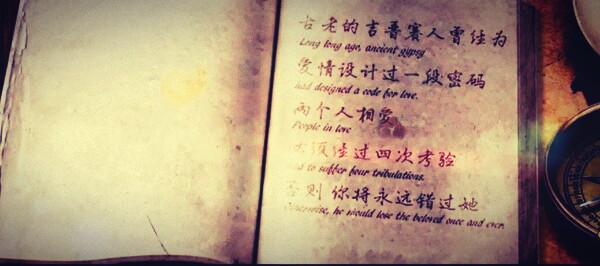 古老的吉普賽人曾经为
Long long age, ancient gypsy
爱情设计过一段密码
had designed a code for love.
两个人相爱
People in love
须经过四次考验
to suffer four tribulations.
否则你将永远错过她
Otherwise, he would lose the beloved once and ever.